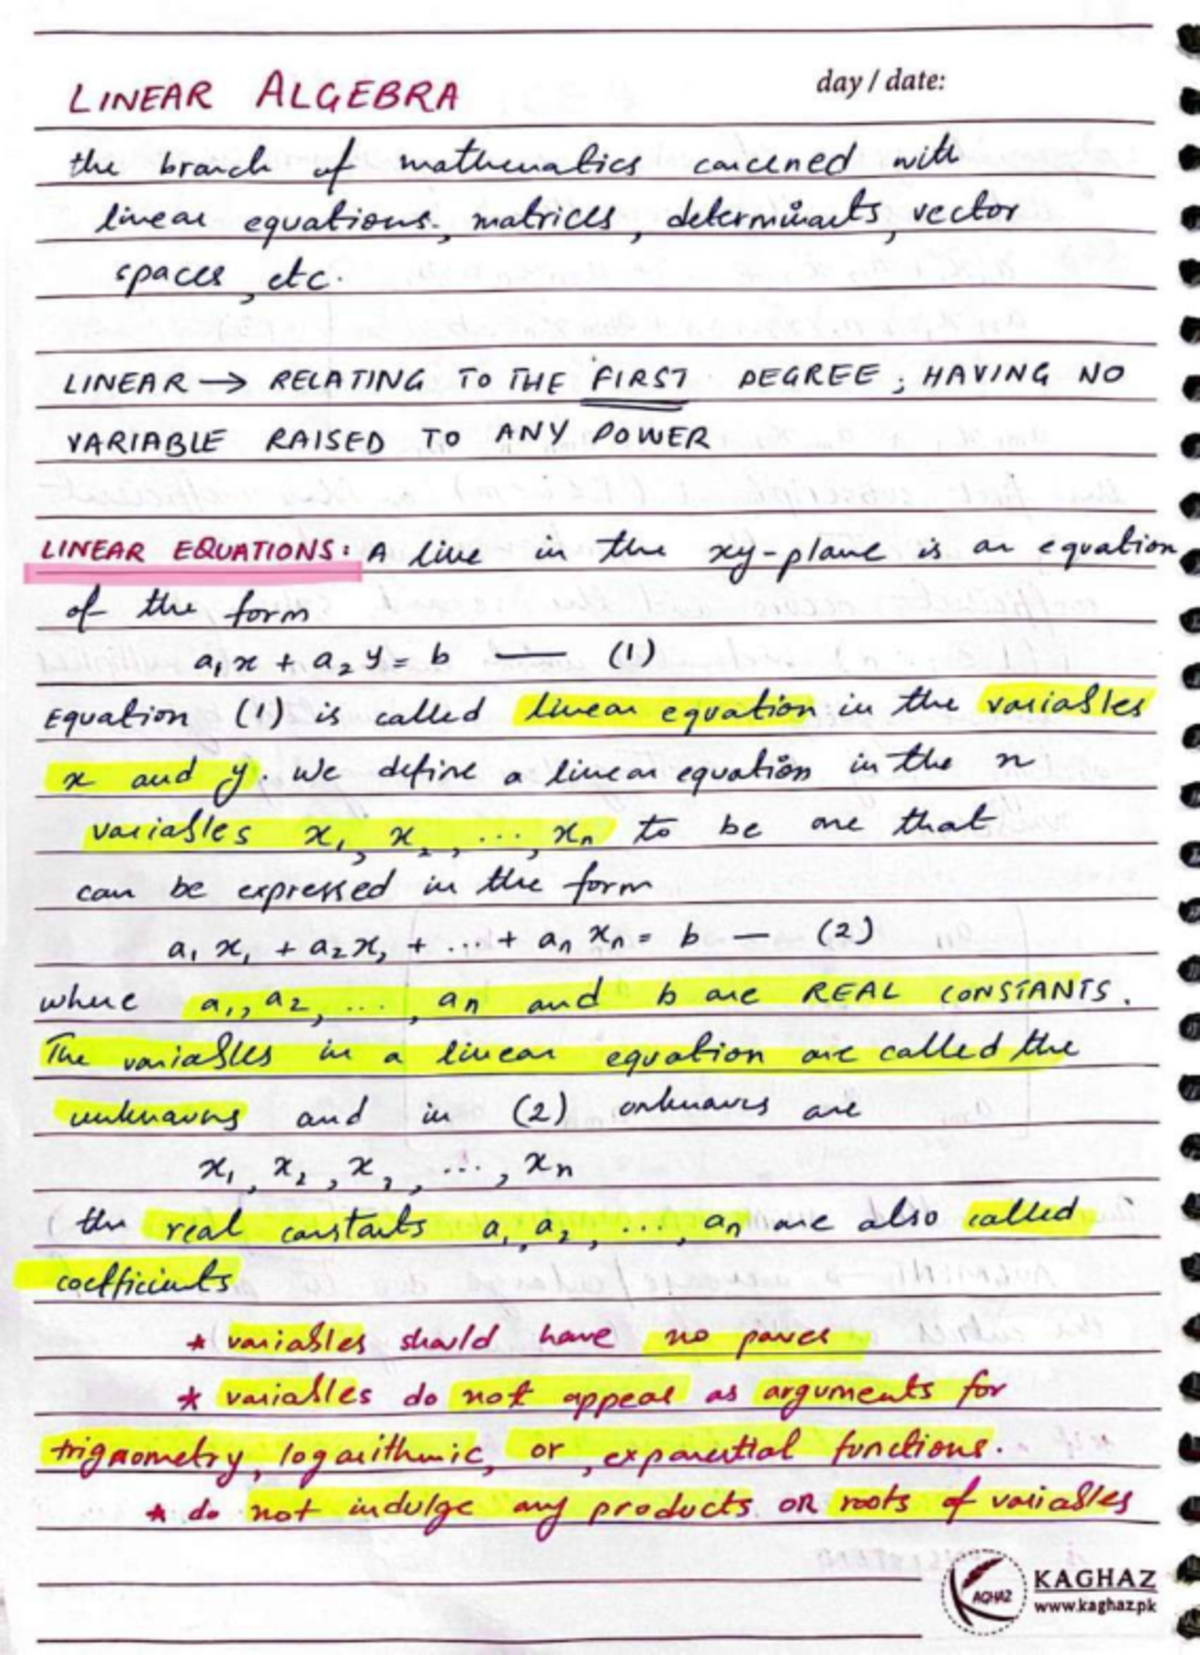 LINEAR ALGEBRA
day / date:
the branch of mathematics concerned with
linear equations, matrices, determinants, vector
spaces, etc.
LINEAR → RELATING TO THE FIRST DEGREE; HAVING NO
VARIABLE RAISED TO ANY POWER
LINEAR EQUATIONS: A line in the xy-plane is an equation
of the form
a₁x + a₂y = b — (1)
Equation (1) is called linear equation in the variables
x and y. We define a linear equation in the n
variables x₁, x₂, ..., xₙ to be one that
can be expressed in the form
a₁x₁ + a₂x₂ + ... + aₙxₙ = b — (2)
where a₁, a₂, ..., aₙ and b are REAL CONSTANTS.
The variables in a linear equation are called the
unknowns and in (2) unknowns are
x₁, x₂, x₃, ..., xₙ
the real constants a₁, a₂, ..., aₙ are also called
coefficients
* variables should have no power
* variables do not appear as arguments for
trignometry, logarithmic, or, exponential functions.
* do not indulge any products OR roots of variables
AGHAZ
KAGHAZ
www.kaghaz.pk